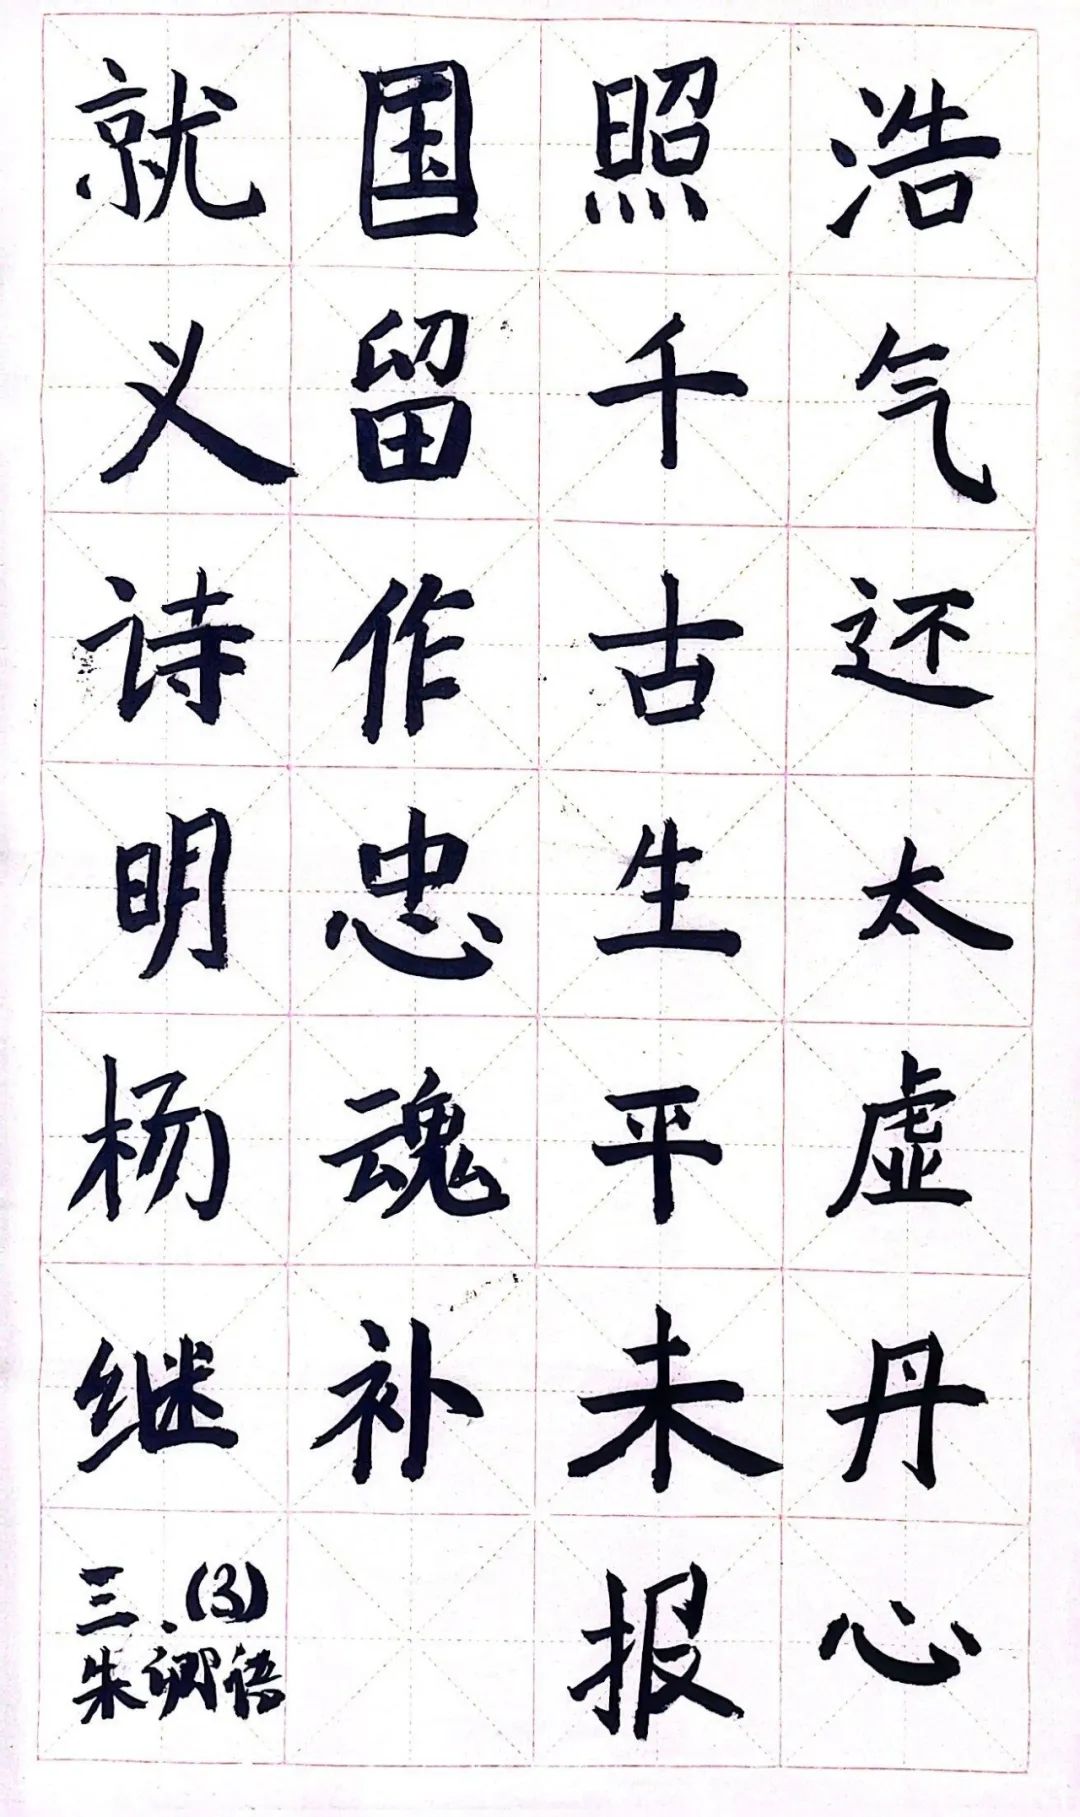 浩气还太虚丹心
照千古生平未报
国留作忠魂补
就义诗明杨继
三.(3)
朱卿语